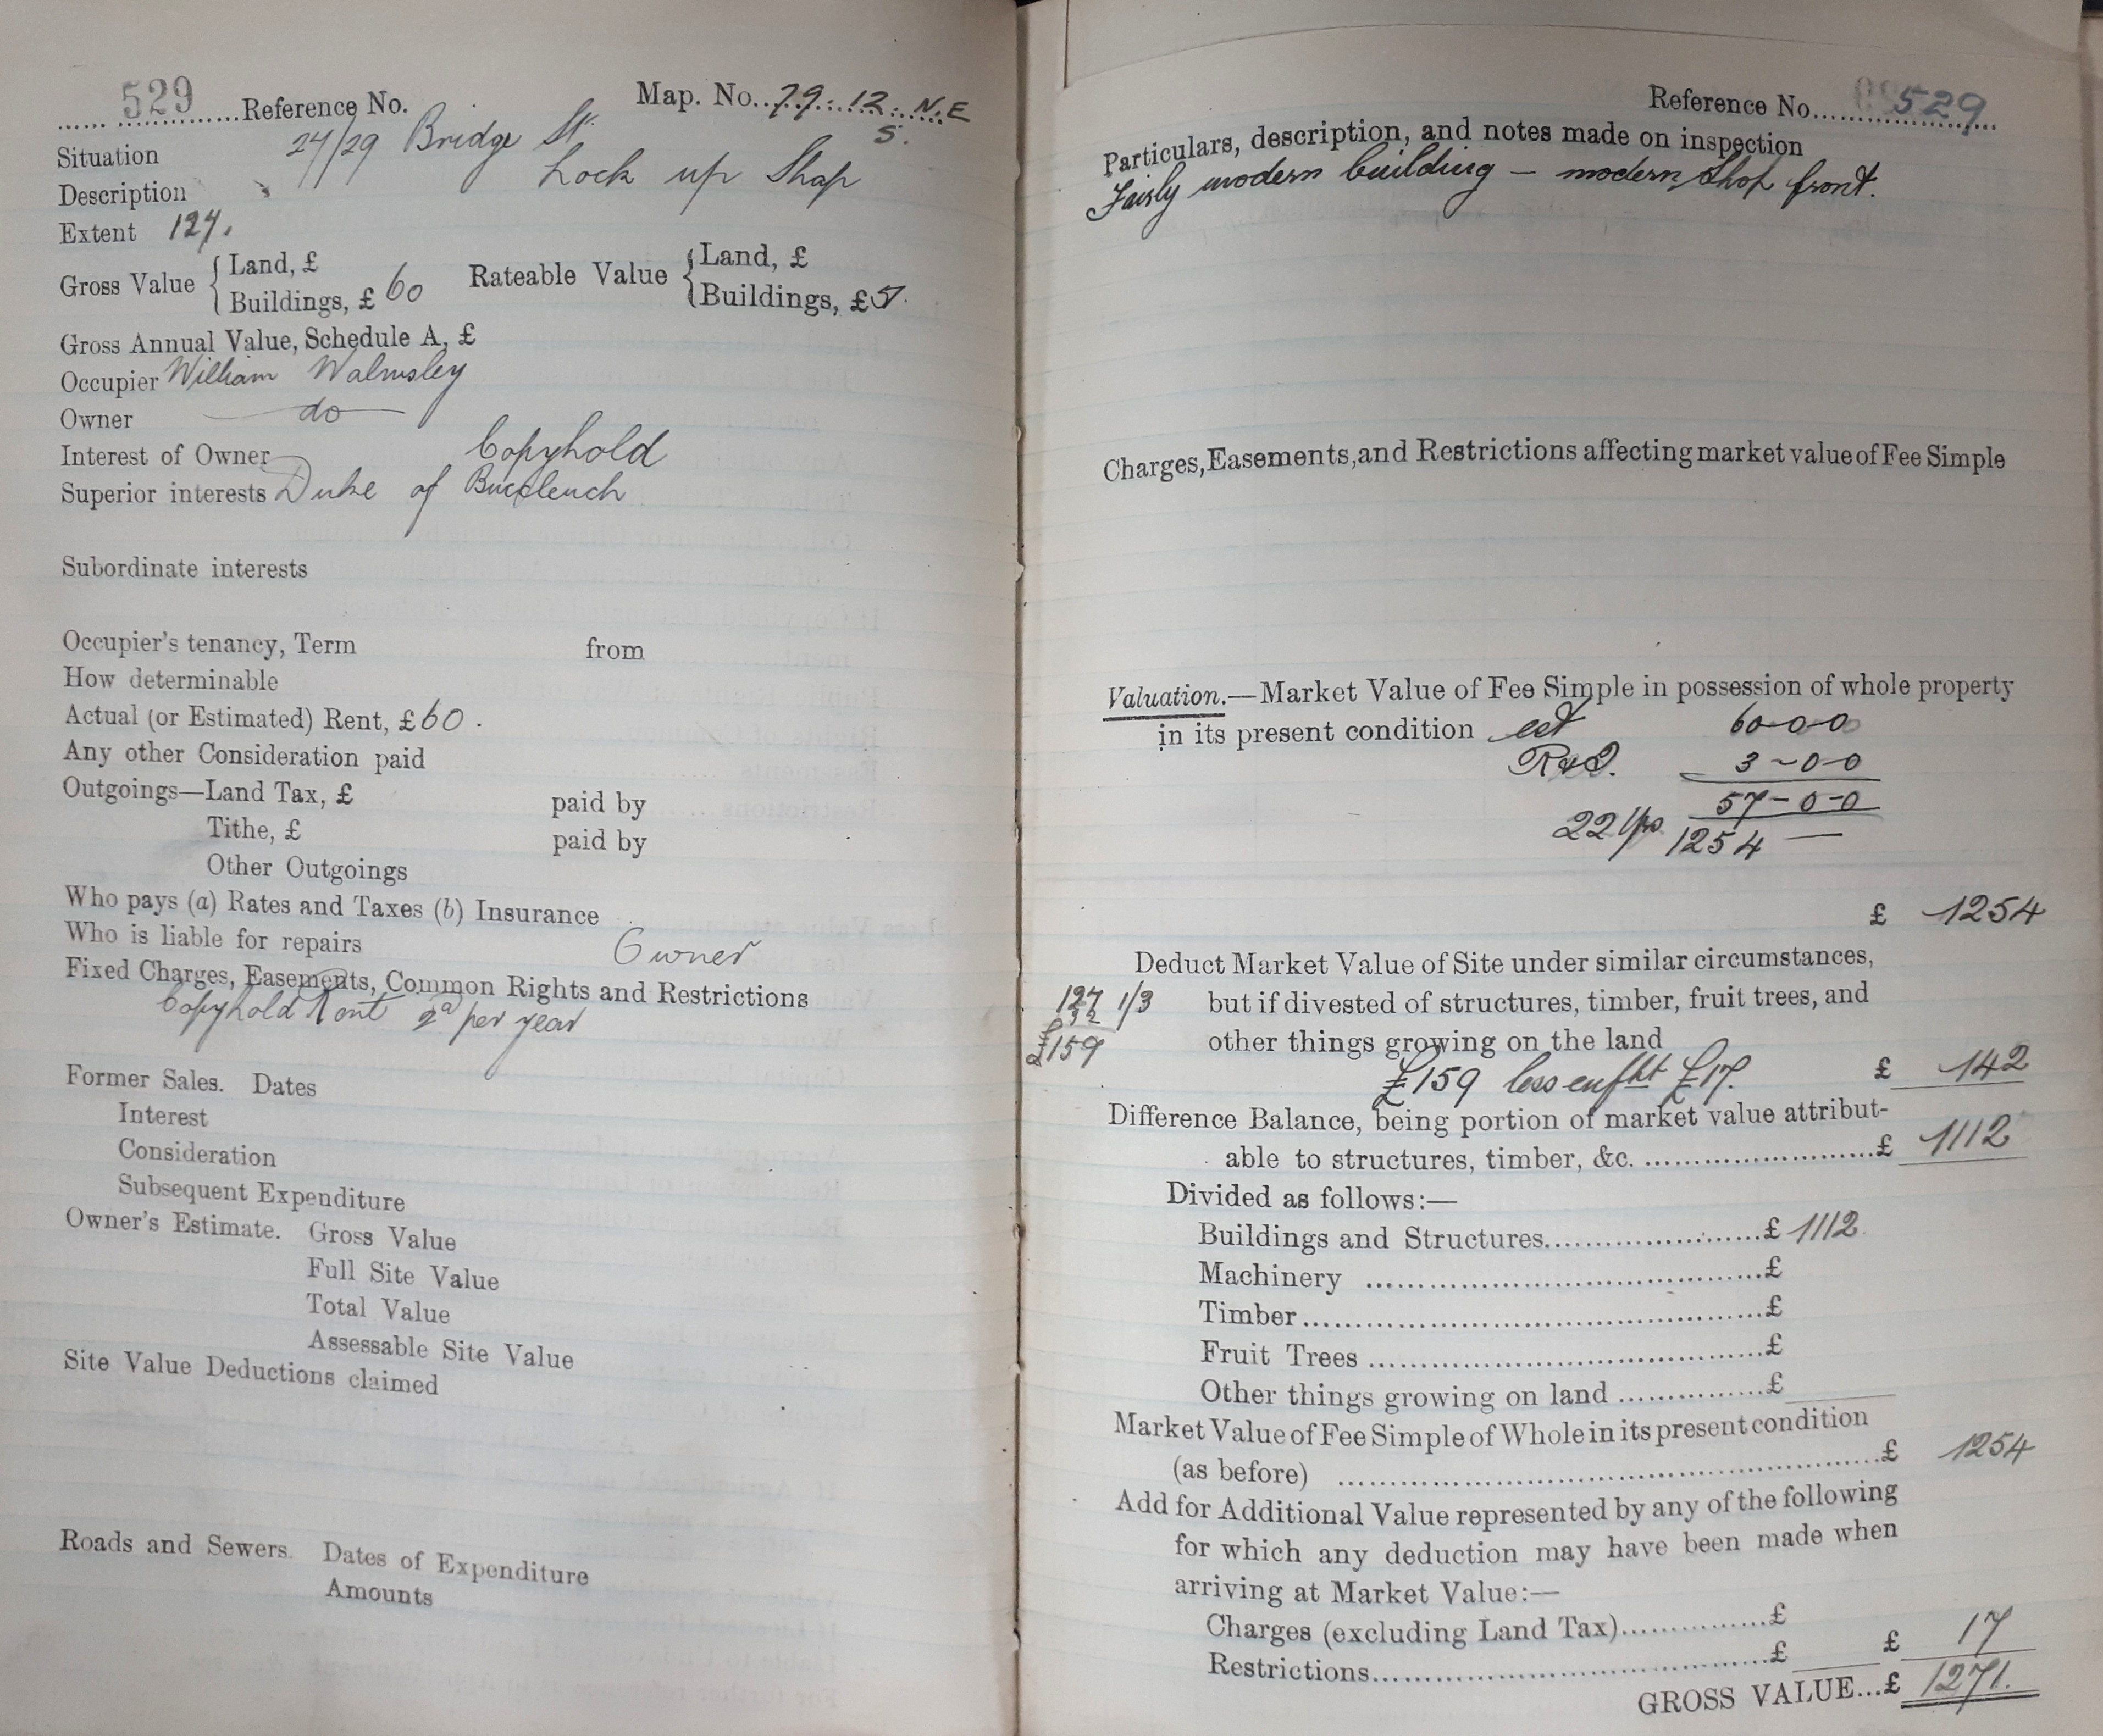 529 Reference No. Map. No. 79. 12. N.E
5.
Situation 27/29 Bridge St.
Description Lock up Shop
Extent 127.
Gross Value { Land, £
Buildings, £ 60
Rateable Value { Land, £
Buildings, £ 51.
Gross Annual Value, Schedule A, £
Occupier William Walmsley
Owner do
Interest of Owner Copyhold
Superior interests Duke of Buccleuch
Subordinate interests
Occupier's tenancy, Term from
How determinable
Actual (or Estimated) Rent, £ 60.
Any other Consideration paid
Outgoings—Land Tax, £ paid by
Tithe, £ paid by
Other Outgoings
Who pays (a) Rates and Taxes (b) Insurance
Who is liable for repairs Owner
Fixed Charges, Easements, Common Rights and Restrictions
Copyhold Rent 2d per year
Former Sales. Dates
Interest
Consideration
Subsequent Expenditure
Owner's Estimate. Gross Value
Full Site Value
Total Value
Assessable Site Value
Site Value Deductions claimed
Roads and Sewers. Dates of Expenditure
Amounts
Reference No. 529
Particulars, description, and notes made on inspection
Fairly modern building – modern shop front.
Charges, Easements, and Restrictions affecting market value of Fee Simple
Valuation.—Market Value of Fee Simple in possession of whole property
in its present condition est 60-0-0
R&I. 3-0-0
57-0-0
22 yps 1254 —
£ 1254
Deduct Market Value of Site under similar circumstances,
but if divested of structures, timber, fruit trees, and
other things growing on the land
127 1/3
32
£159
£159 less enfht £17. £ 142
Difference Balance, being portion of market value attribut-
able to structures, timber, &c. £ 1112
Divided as follows:—
Buildings and Structures £ 1112.
Machinery £
Timber £
Fruit Trees £
Other things growing on land £
Market Value of Fee Simple of Whole in its present condition
(as before) £ 1254
Add for Additional Value represented by any of the following
for which any deduction may have been made when
arriving at Market Value:—
Charges (excluding Land Tax) £
Restrictions £ £ 17
GROSS VALUE...£ 1271.